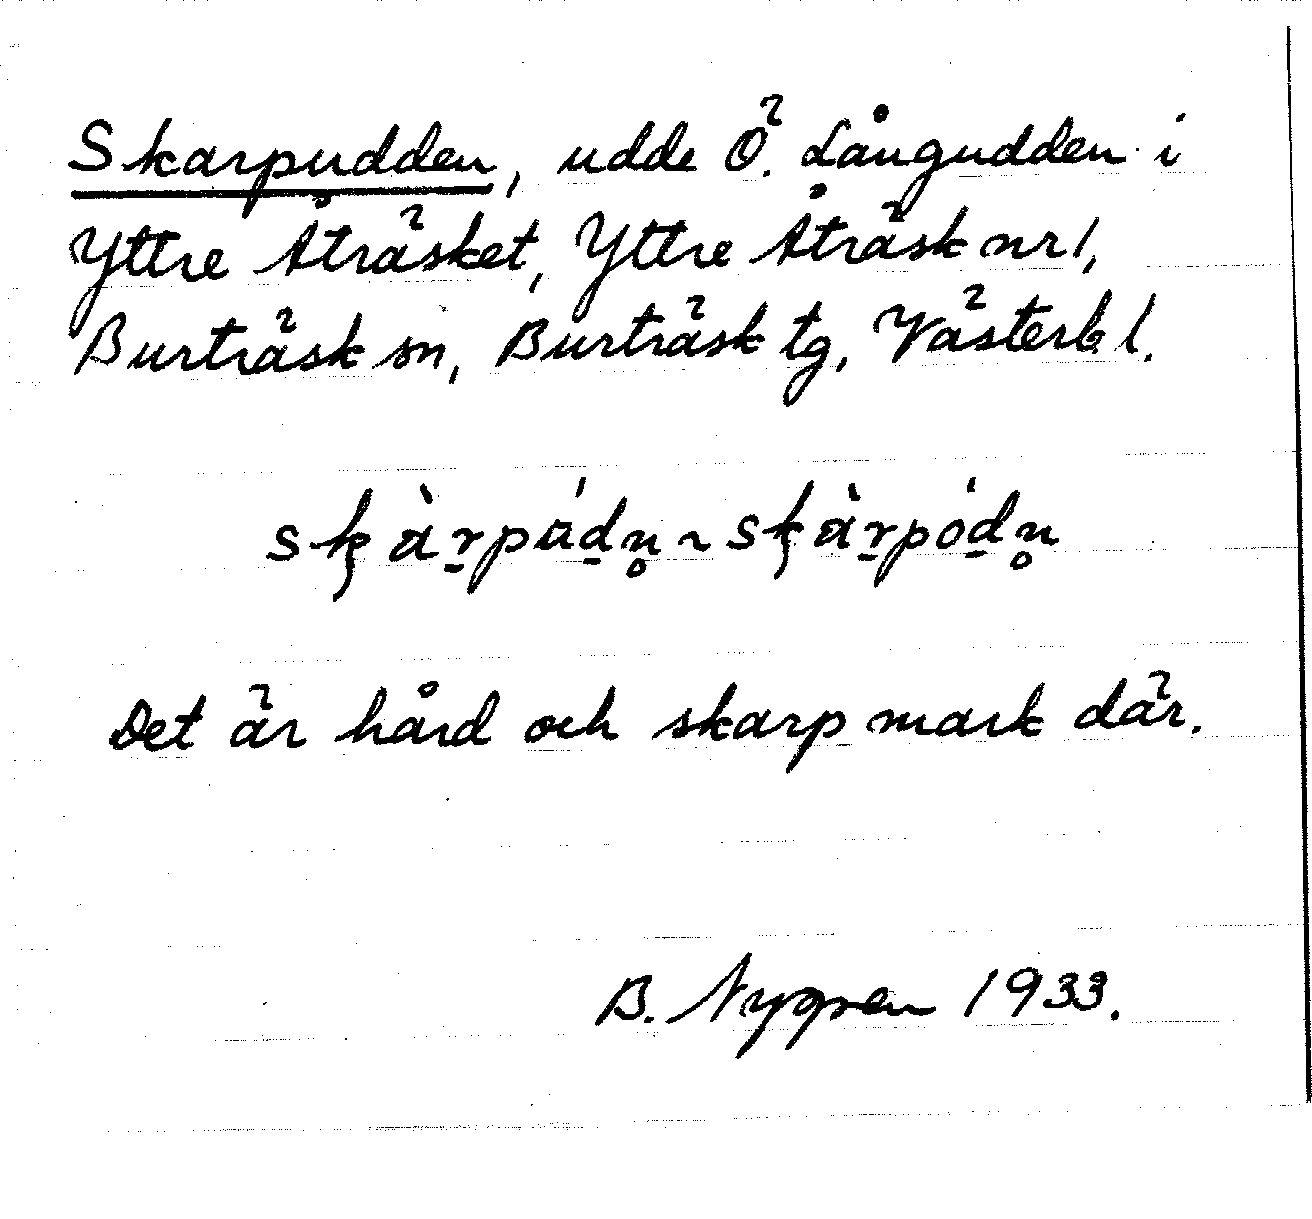 Skarpudden, udde Ö. Långudden i
Yttre Åträsket, Yttre Åträsk nr 1,
Burträsk sn, Burträsk tg, Västerb l.
skàrpúdn̥ ~ skàrpódn̥
Det är hård och skarp mark där.
B. Nygren 1933.